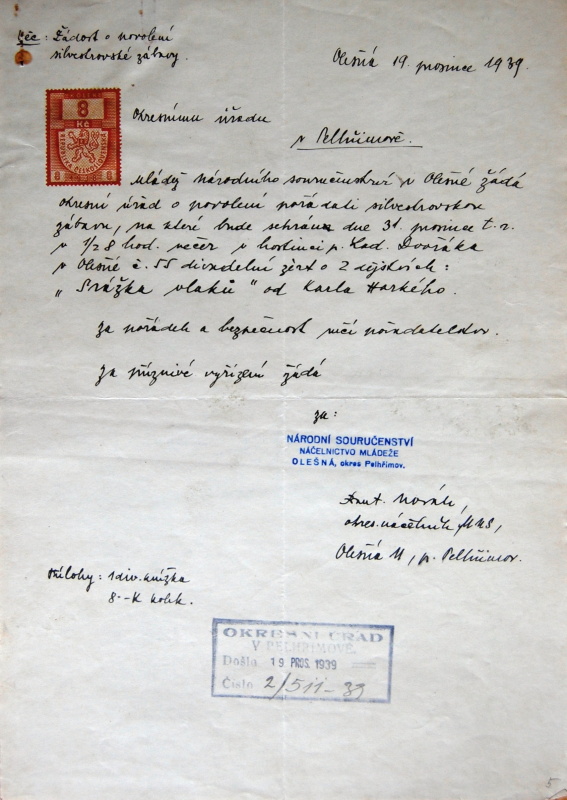 Věc: Žádost o povolení
silvestrovské zábavy.
Olešná 19. prosince 1939.
8
Kč
REPUBLIKA ČESKOSLOVENSKÁ
8 8
Okresnímu úřadu
v Pelhřimově.
Mládež národního souručenství v Olešné žádá
okresní úřad o povolení pořádati silvestrovskou
zábavu, na které bude sehrána dne 31. prosince t.r.
v 1/2 8 hod. večer v hostinci p. Lad. Dvořáka
v Olešné č. 55 divadelní žert o 2 dějstvích:
„Srážka vlaků" od Karla Horkého.
Za pořádek a bezpečnost ručí pořadatelstvo.
Za příznivé vyřízení žádá
za:
NÁRODNÍ SOURUČENSTVÍ
NÁČELNICTVO MLÁDEŽE
OLEŠNÁ, okres Pelhřimov.
Ant. Novák,
okres. náčelník MNS,
Olešná 11, p. Pelhřimov.
Přílohy: 1 div. knížka
8.-K kolek.
OKRESNÍ ÚŘAD
V PELHŘIMOVĚ.
Došlo 19 PROS. 1939
Číslo 2/511-39
5